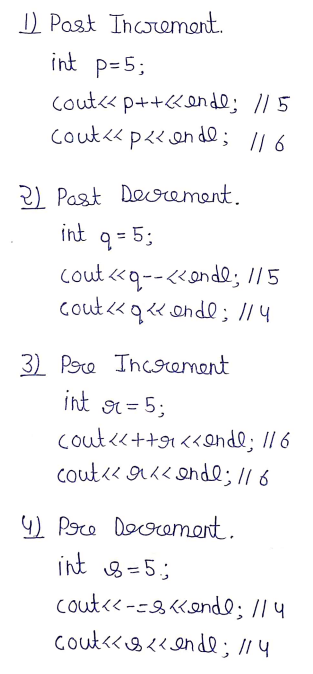 1) Post Increment.
int p=5;
cout<< p++<<endl; // 5
cout<< p<<endl; // 6
2) Post Decrement.
int q = 5;
cout<<q--<<endl; //5
cout<<q<<endl; //4
3) Pre Increment
int r=5;
cout<<++r<<endl; //6
cout<< r<<endl; //6
4) Pre Decrement.
int s=5;
cout<<--s<<endl; //4
cout<<s<<endl; //4